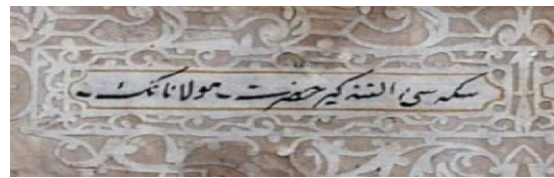 سكه سی التنه كیر حضرت مولانانك